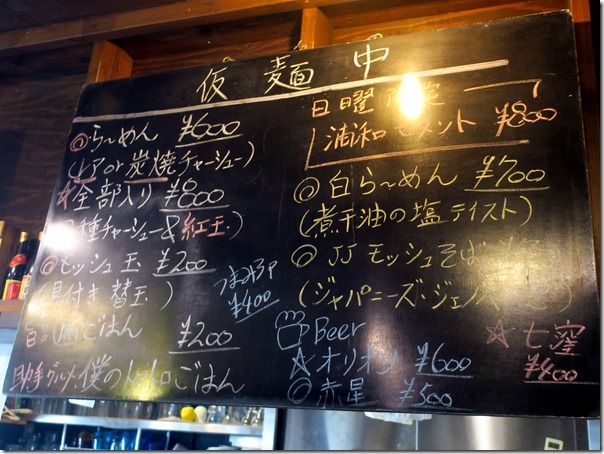 仮麺中
◎らーめん ¥600
(レアor炭焼チャーシュー)
☆全部入り ¥800
種チャーシュー&紅玉)
◎モッシュ玉 ¥200
(具付き替玉)
つまみ
¥400
ごはん ¥200
助手グルメ.僕の ごはん
日曜限定
浦和セメント ¥800
◎白らーめん ¥700
(煮干油の塩テイスト)
◎JJモッシュそば
(ジャパニーズ・ジェノ
Beer
☆オリオン ¥600
◎赤星 ¥500
☆七窪
¥400